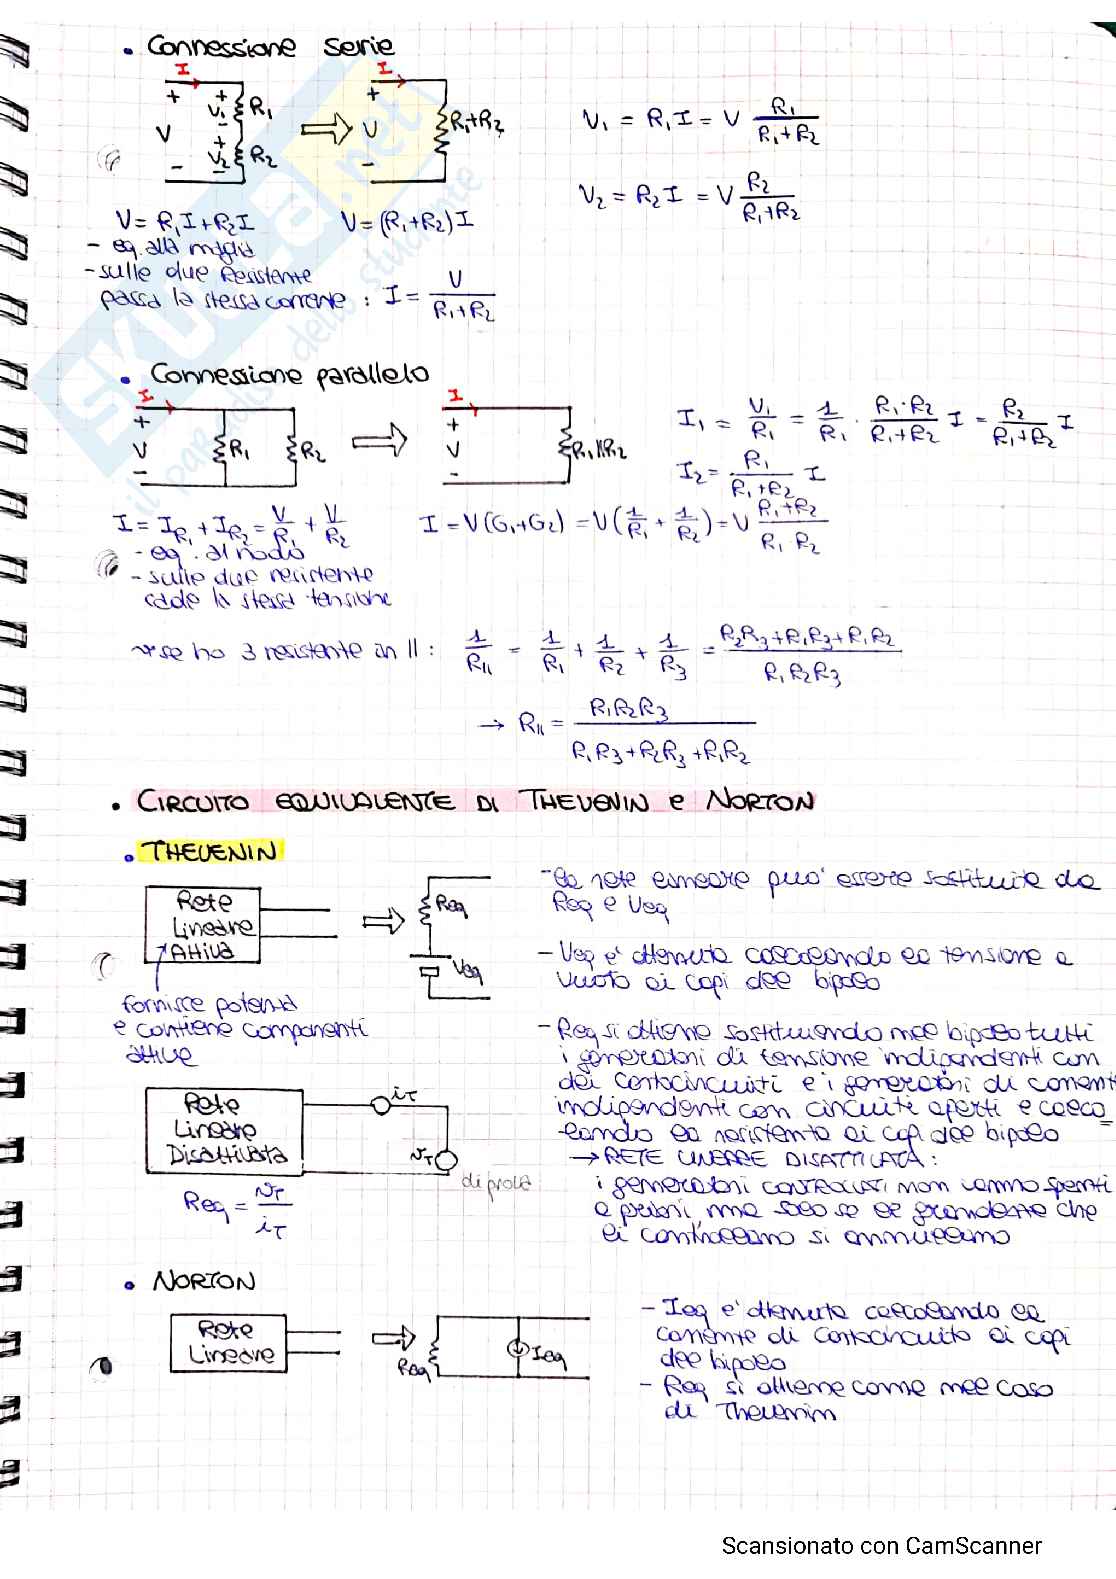 • Connessione serie
I
+ + V₁ - R₁
V
+ V₂ - R₂
-
I
+ V - R₁+R₂
V₁ = R₁I = V R₁/(R₁+R₂)
V₂ = R₂I = V R₂/(R₁+R₂)
V = R₁I + R₂I
V = (R₁+R₂)I
- eq. alla maglia
- sulle due resistente
passa la stessa corrente : I = V/(R₁+R₂)
• Connessione parallelo
I
+ V - R₁ R₂
I
+ V - R₁||R₂
I₁ = V₁/R₁ = 1/R₁ · (R₁·R₂)/(R₁+R₂) I = R₂/(R₁+R₂) I
I₂ = R₁/(R₁+R₂) I
I = I_R₁ + I_R₂ = V/R₁ + V/R₂
I = V(G₁+G₂) = V(1/R₁ + 1/R₂) = V (R₁+R₂)/(R₁·R₂)
- eq. al nodo
- sulle due resistente
cade la stessa tensione
se ho 3 resistente in || : 1/R_|| = 1/R₁ + 1/R₂ + 1/R₃ = (R₂R₃+R₁R₃+R₁R₂)/(R₁R₂R₃)
→ R_|| = R₁R₂R₃/(R₁R₃+R₂R₃+R₁R₂)
• CIRCUITO EQUIVALENTE DI THEVENIN e NORTON
• THEVENIN
Rete
Lineare
Attiva
Req
Veq
fornisce potenza
e contiene componenti
attive
- la rete lineare puo' essere sostituita da
Req e Veq
- Veq e' ottenuta calcolando la tensione a
vuoto ai capi del bipolo
- Req si ottiene sostituendo nel bipolo tutti
i generatori di tensione indipendenti con
dei cortocircuiti e i generatori di corrente
indipendenti con circuiti aperti e calco
lando la resistenta ai capi del bipolo
→ RETE LINEARE DISATTIVATA :
i generatori CONTROLLATI non vanno spenti
a priori, ma solo se le grandezze che
li controllano si annullano
Rete
Lineare
Disattivata
i_T
v_T
di prova
Req = v_T/i_T
• NORTON
Rete
Lineare
Req
Ieq
- Ieq e' ottenuta calcolando la
corrente di cortocircuito ai capi
del bipolo
- Req si ottiene come nel caso
di Thevenin
skuola.net
il paradiso dello studente
Scansionato con CamScanner